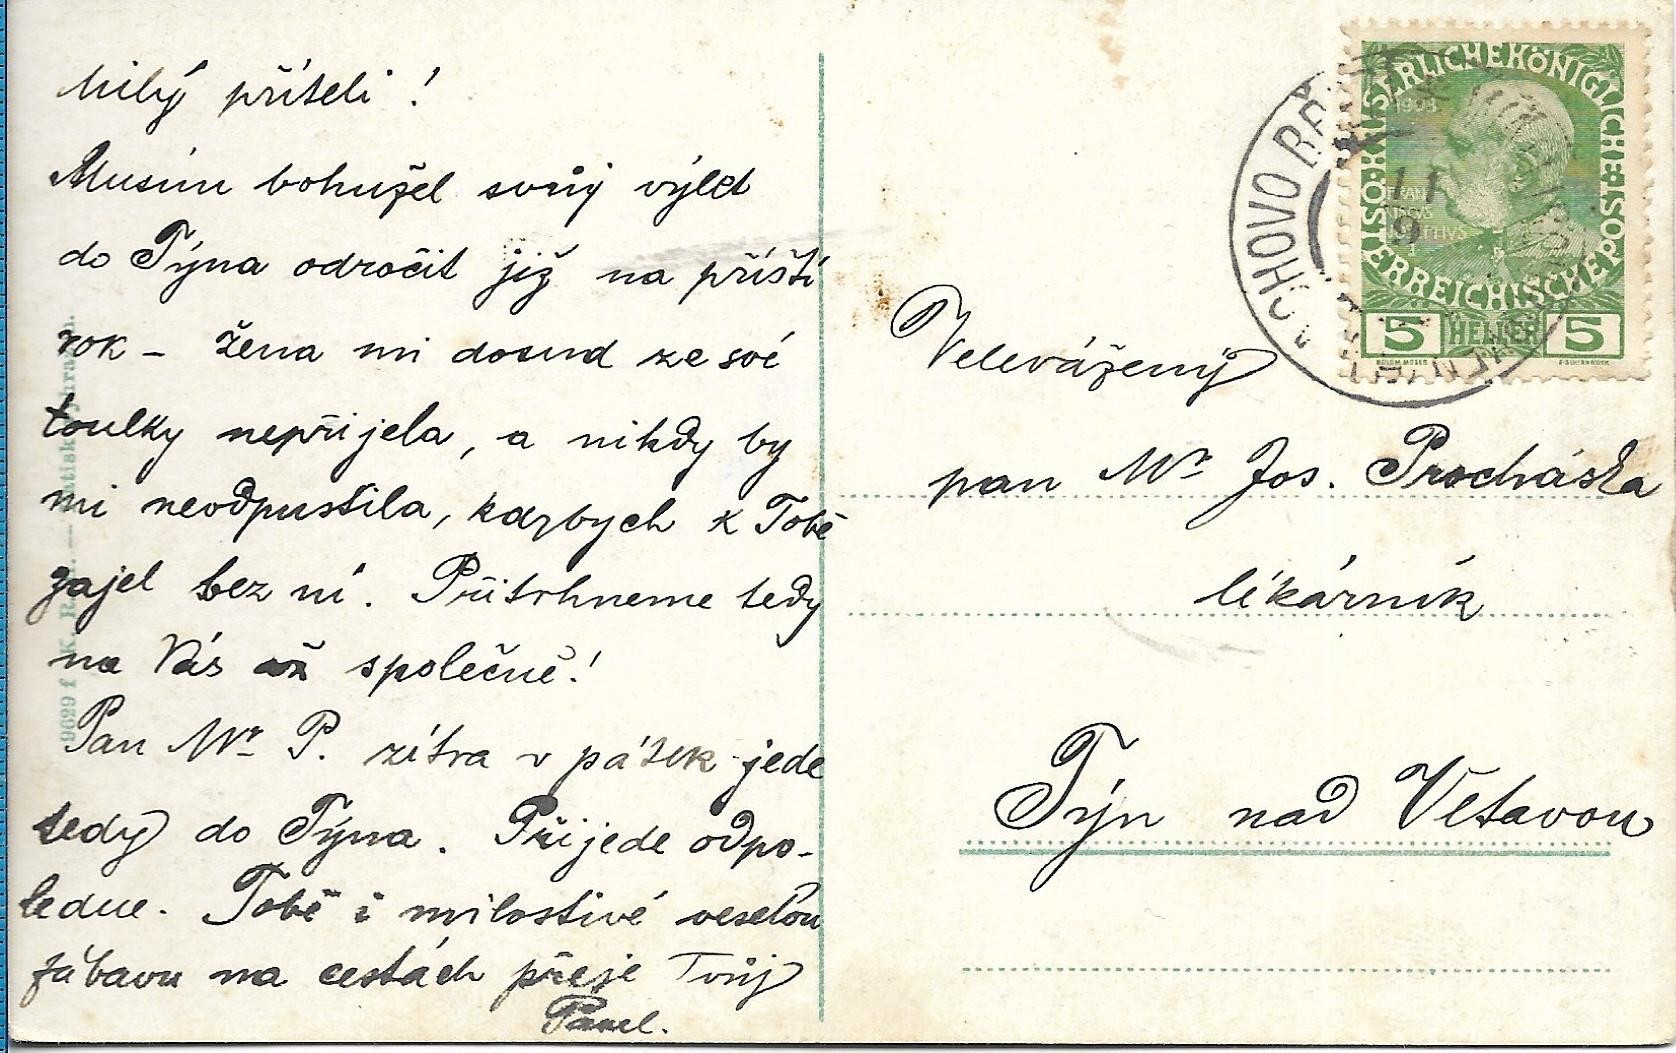 Milý příteli!
Musím bohužel svůj výlet
do Týna odročit již na příští
rok – žena mi dosud ze své
toulky nepřijela, a nikdy by
mi neodpustila, kdybych k Tobě
zajel bez ní. Přitrhneme tedy
na Vás až společně!
Pan Mr P. zítra v pátek jede
tedy do Týna. Přijede odpo-
ledne. Tobě i milostivé veselou
zábavu na cestách přeje Tvůj
Pavel.
9629 f K.
KAISERLICHE KÖNIGLICHE ÖSTERREICHISCHE POST
1908
5 HELLER 5
11
9
Velevážený
pan Mr Jos. Procháska
lékárník
Týn nad Vltavou